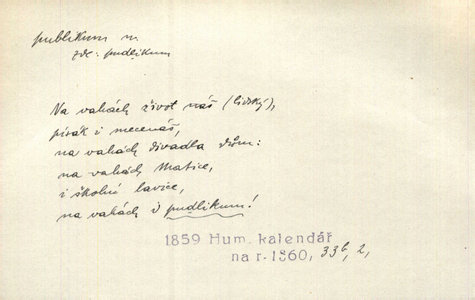 publikum n.
zde: pudlikum
Na vahách život náš (lidský),
písák i mecenáš,
na vahách divadla dům:
na vahách Matice,
i školní lavice,
na vahách i pudlikum!
1859 Hum. kalendář
na r. 1860, 33b, 2,